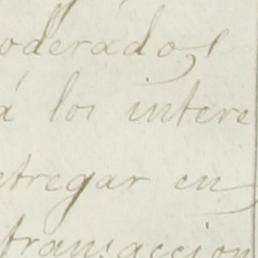 oderados
á los intere
etregar en
transaccion